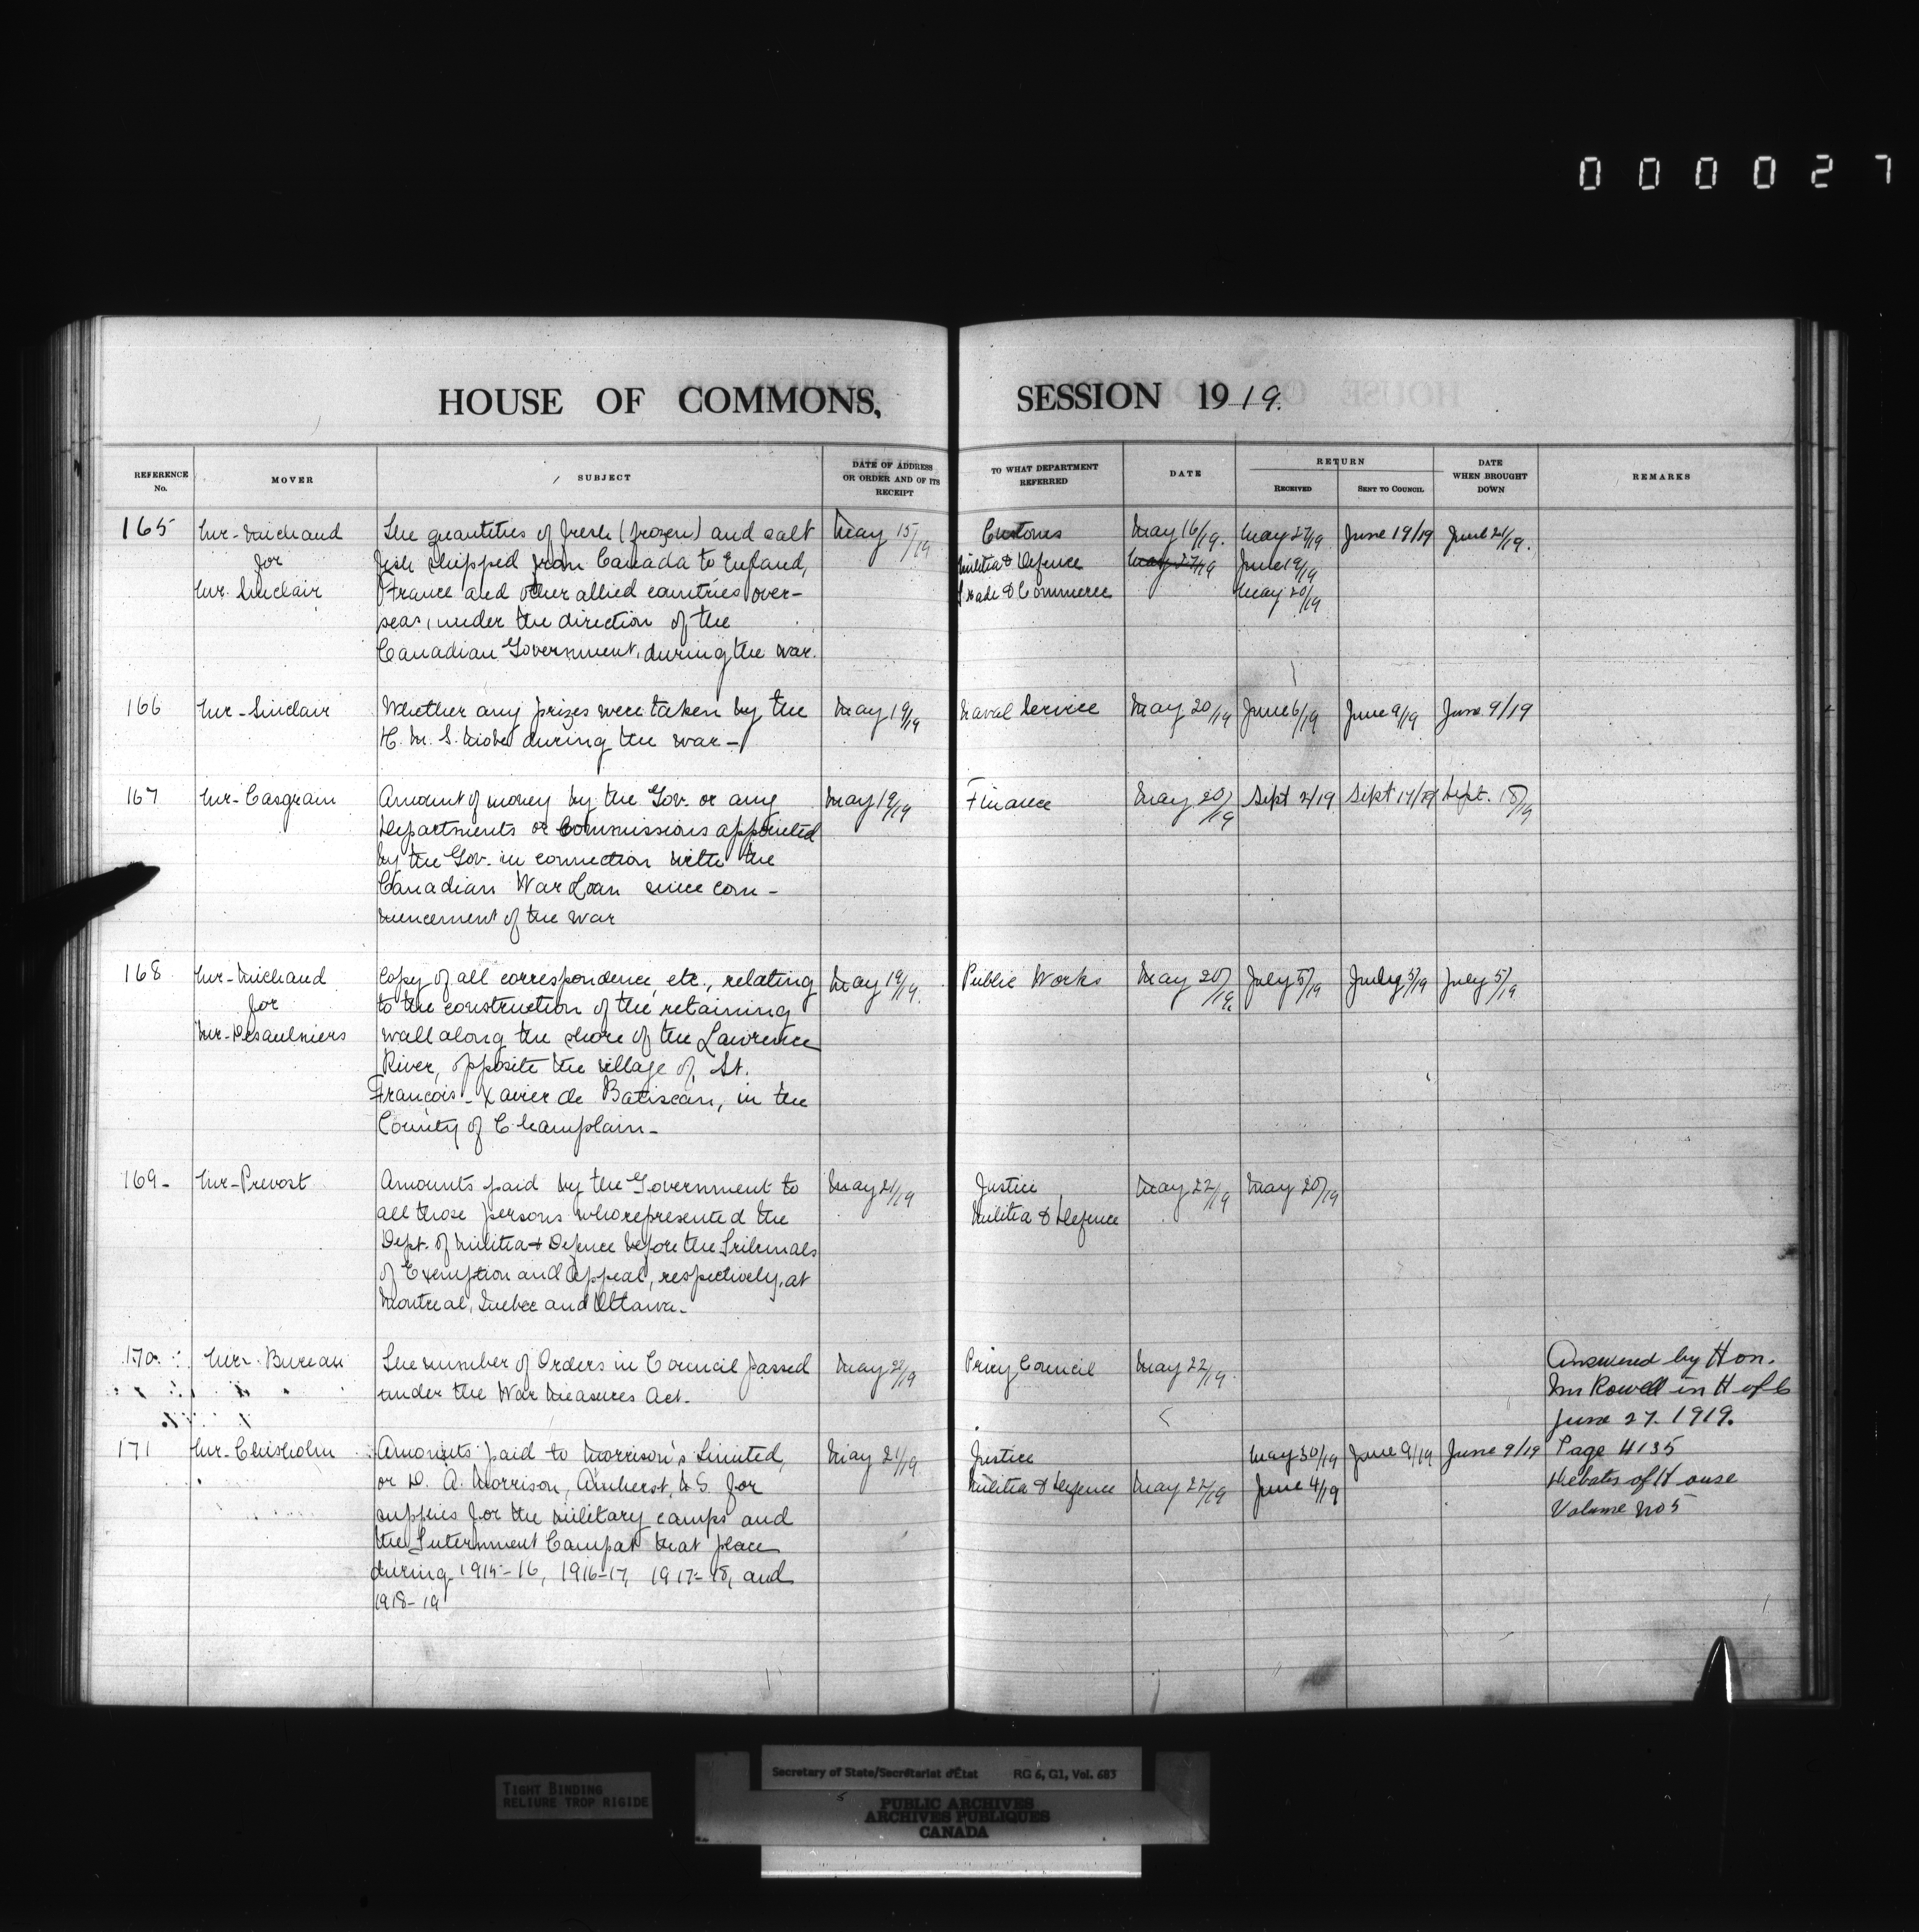 0 0 0 0 2 7
HOUSE OF COMMONS, SESSION 1919.
REFERENCE No. MOVER SUBJECT DATE OF ADDRESS OR ORDER AND OF ITS RECEIPT TO WHAT DEPARTMENT REFERRED DATE RETURN RECEIVED SENT TO COUNCIL DATE WHEN BROUGHT DOWN REMARKS
165 Mr-Michaud The quantities of fresh (frozen) and salt May 15/19 Customs May 16/19. May 27/19 June 19/19 June 21/19.
for fish shipped from Canada to England, Militia & Defence May 27/19 June 19/19
Mr. Sinclair France and other allied countries over- Trade & Commerce May 20/19
seas, under the direction of the
Canadian Government, during the war.
166 Mr-Sinclair Whether any prizes were taken by the May 19/19 Naval Service May 20/19 June 6/19 June 9/19 June 9/19
H. M. S. Niobe during the war-
167 Mr-Casgrain Amount of money by the Gov. or any May 19/19 Finance May 20/19 Sept 2/19 Sept 17/19 Sept. 18/19
Departments or Commissions appointed
by the Gov. in connection with the
Canadian War Loan since com-
mencement of the war
168 Mr-Michaud Copy of all correspondence, etc., relating May 19/19. Public Works May 20/19 July 5/19 July 5/19 July 5/19
for to the construction of the retaining
Mr-Desaulniers wall along the shore of the Lawrence
River, opposite the village of St.
François-Xavier de Batiscan, in the
County of Champlain-
169- Mr-Prevost Amounts paid by the Government to May 21/19 Justice May 22/19 May 20/19
all those persons who represented the Militia & Defence
Dept. of Militia & Defence before the Tribunals
of Exemption and Appeal, respectively, at
Montreal, Quebec and Ottawa-
170 Mr. Bureau The number of Orders in Council passed May 21/19 Privy Council May 22/19. Answered by Hon.
under the War Measures Act. Mr Rowell in H of C
June 27. 1919.
171 Mr-Chisholm Amounts paid to Morrison's Limited, May 21/19 Justice May 30/19 June 9/19 June 9/19 Page 4135
or D. A. Morrison, Amherst, N.S. for Militia & Defence May 22/19 June 4/19 Debates of House
supplies for the military camps and Volume No 5
the Internment Camp at that place
during 1915-16, 1916-17, 1917-18, and
1918-19
TIGHT BINDING
RELIURE TROP RIGIDE
Secretary of State/Secrétariat d'État RG 6, G1, Vol. 683
PUBLIC ARCHIVES
ARCHIVES PUBLIQUES
CANADA